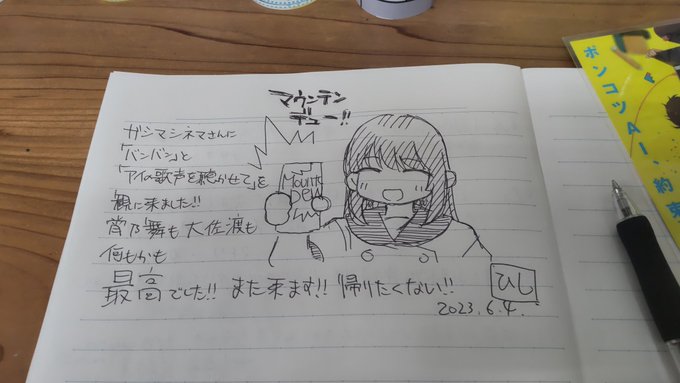 マウンテン
デュー!!
ガシマシネマさんに
「バンバン」と
「アイの歌声を聴かせて」を
観に来ました!!
宵乃舞も大佐渡も
何もかも
最高でした!! また来ます!! 帰りたくない!!
Mount
Dew
ひし
2023.6.4.
ポンコツAI、約束